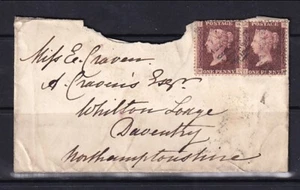 Miss E. Craven
A. Craven's Esqr.
Whilton Lodge
Daventry
Northamptonshire
POSTAGE POSTAGE
ONE PENNY ONE PENNY